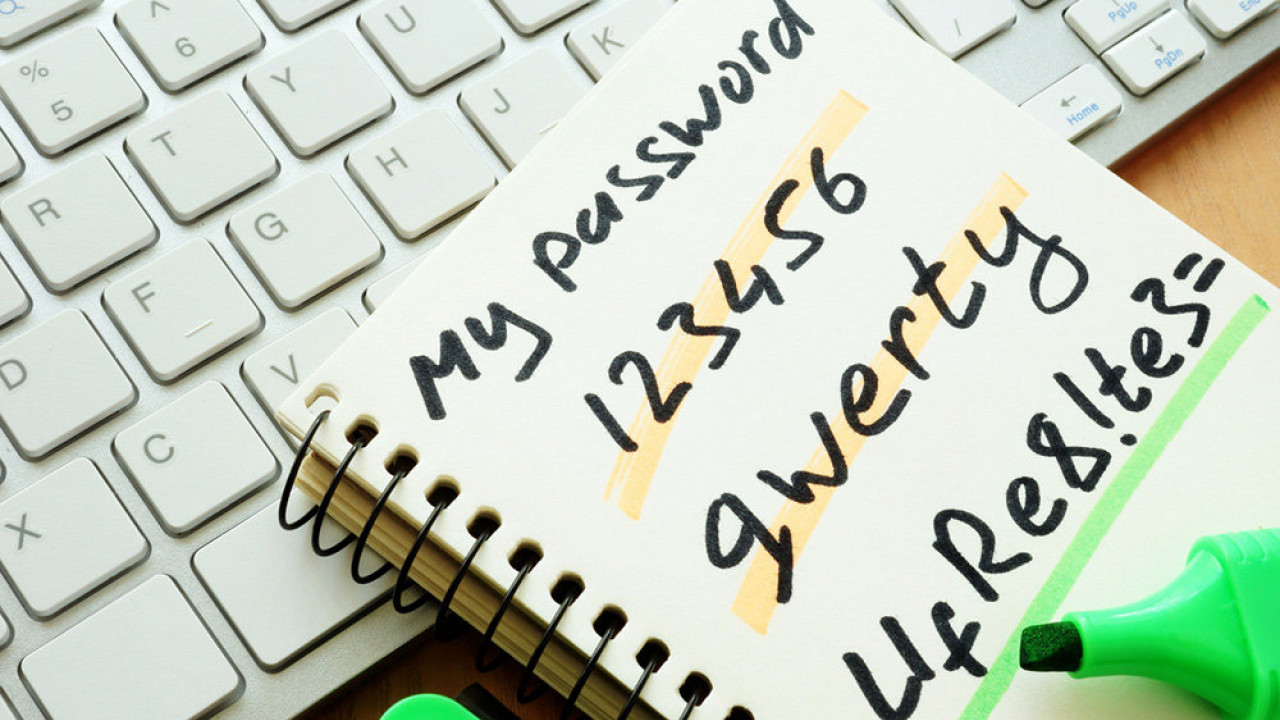 My password
123456
qwerty
UfRe8!te3=
^
6
U
K
/
PgUp
End
%
5
Y
J
PgDn
T
H
Home
R
G
F
D
V
C
X